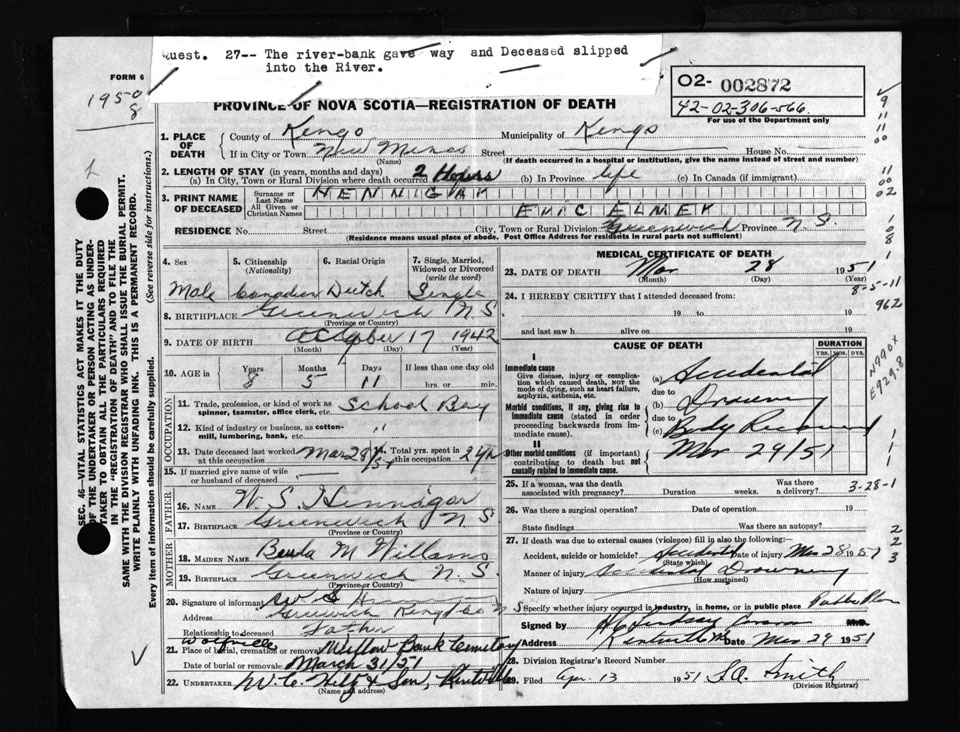 Quest. 27-- The river-bank gave way and Deceased slipped
into the River.
FORM 6
1950
8
O2- 002872
42-02-306-566
For use of the Department only
PROVINCE OF NOVA SCOTIA—REGISTRATION OF DEATH
1. PLACE OF DEATH
County of Kings Municipality of Kings
If in City or Town New Minas Street House No.
(Name) (If death occurred in a hospital or institution, give the name instead of street and number)
2. LENGTH OF STAY (in years, months and days)
(a) In City, Town or Rural Division where death occurred 2 Hours (b) In Province life (c) In Canada (if immigrant)
3. PRINT NAME OF DECEASED
Surname or Last Name HENNIGAR
All Given or Christian Names ERIC ELMER
RESIDENCE No. Street City, Town or Rural Division Greenwich Province N.S.
(Residence means usual place of abode. Post Office Address for residents in rural parts not sufficient)
4. Sex 5. Citizenship (Nationality) 6. Racial Origin 7. Single, Married, Widowed or Divorced (write the word)
Male Canadian Dutch Single
8. BIRTHPLACE Greenwich N.S.
(Province or Country)
9. DATE OF BIRTH October 17 1942
(Month) (Day) (Year)
10. AGE in Years Months Days If less than one day old
8 5 11 hrs. or min.
OCCUPATION
11. Trade, profession, or kind of work as spinner, teamster, office clerk, etc. School Boy
12. Kind of industry or business, as cotton-mill, lumbering, bank, etc. " "
13. Date deceased last worked at this occupation Mar 28/51 14. Total yrs. spent in this occupation
15. If married give name of wife or husband of deceased
FATHER
16. NAME W. S. Hennigar
17. BIRTHPLACE Greenwich N S
(Province or Country)
MOTHER
18. MAIDEN NAME M Williams
19. BIRTHPLACE Greenwich N.S.
(Province or Country)
20. Signature of informant W S
Address Greenwich Kings Co N S
Relationship to deceased Father
Wolfville
21. Place of burial, cremation or removal Willow Bank Cemetery
Date of burial or removal March 31/51
22. UNDERTAKER W. C. Hiltz & Son, Kentville
(Name and address)
MEDICAL CERTIFICATE OF DEATH
23. DATE OF DEATH Mar 28 1951
(Month) (Day) (Year)
8-5-11
962
24. I HEREBY CERTIFY that I attended deceased from:
19 to 19
and last saw h alive on 19
CAUSE OF DEATH DURATION
YRS. MOS. DYS.
I
Immediate cause
Give disease, injury or complication which caused death, not the mode of dying, such as heart failure, asphyxia, asthenia, etc.
(a) Accidental
due to
Morbid conditions, if any, giving rise to immediate cause (stated in order proceeding backwards from immediate cause).
(b) Drowning
due to
(c) Body Recovered
II
Other morbid conditions (if important) contributing to death but not causally related to immediate cause.
Mar 29/51
N990X
E929.8
25. If a woman, was the death associated with pregnancy? Duration weeks. Was there a delivery? 3-28-1
26. Was there a surgical operation? Date of operation 19
State findings Was there an autopsy?
27. If death was due to external causes (violence) fill in also the following:—
Accident, suicide or homicide? Accidental Date of injury Mar 28 1951
(State which)
Manner of injury Accidental Drowning
(How sustained)
Nature of injury
Specify whether injury occurred in industry, in home, or in public place Public Place
Signed by M.D.
Address Kentville Date Mar 29 1951
28. Division Registrar's Record Number
29. Filed Apr. 13 1951 Smith
(Division Registrar)
SEC. 46—VITAL STATISTICS ACT MAKES IT THE DUTY
OF THE UNDERTAKER OR PERSON ACTING AS UNDER-
TAKER TO OBTAIN ALL THE PARTICULARS REQUIRED
IN THE "REGISTRATION OF DEATH" AND TO FILE THE
SAME WITH THE DIVISION REGISTRAR WHO SHALL ISSUE THE BURIAL PERMIT.
WRITE PLAINLY WITH UNFADING INK. THIS IS A PERMANENT RECORD.
Every item of information should be carefully supplied. (See reverse side for instructions.)